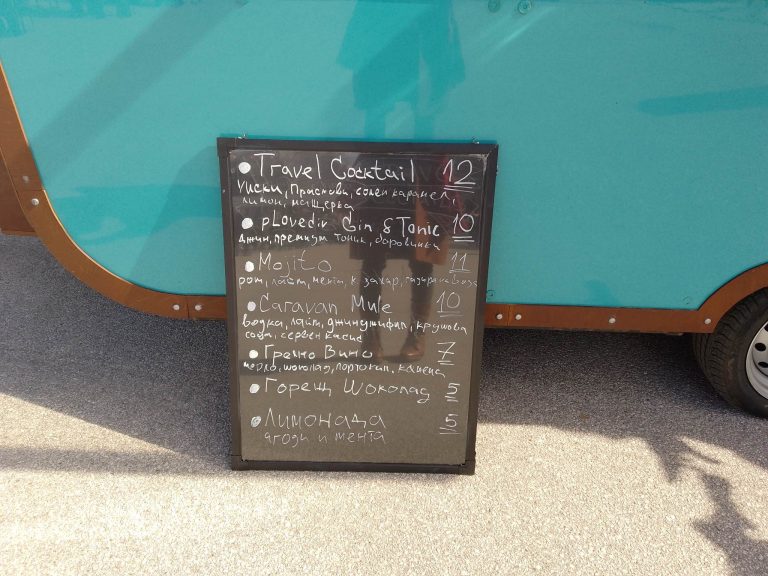 Travel Cocktail 12
уиски, праскови, солен карамел,
лимон, мащерка
pLovediv Gin & Tonic 10
джин, премиум тоник, боровинки
Mojito 11
ром, лайм, мента, к. захар, газирана вода
Caravan Mule 10
водка, лайм, джинджифил, крушова
сода, червен касис
Греяно Вино 7
мерло, шоколад, портокал, канела
Горещ Шоколад 5
Лимонада 5
ягоди и мента